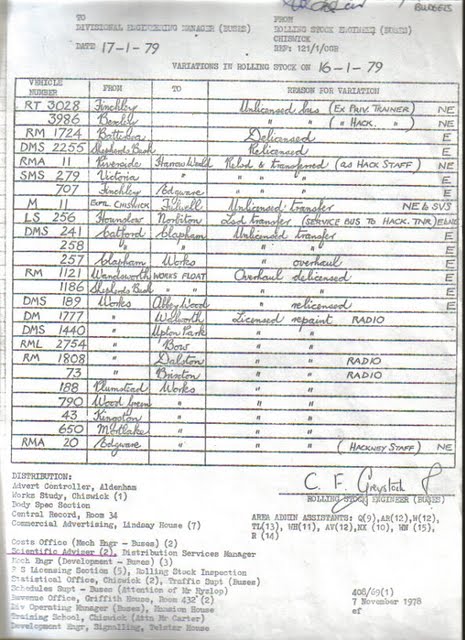 BUDGETS
TO
FROM
DIVISIONAL ENGINEERING MANAGER (BUSES)
ROLLING STOCK ENGINEER (BUSES)
CHISWICK
DATE 17-1-79
REF: 121/1/OGB
VARIATIONS IN ROLLING STOCK ON 16-1-79
VEHICLE NUMBER FROM TO REASON FOR VARIATION
RT 3028 Finchley Unlicensed bus (EX PRIV. TRAINER) NE
3986 Bexley " " ( " HACK. " ) NE
RM 1724 Battersea Delicensed E
DMS 2255 Shepherds Bush Relicensed E
RMA 11 Riverside Harrow Weald Relcd & transferred (as HACK STAFF) NE
SMS 279 Victoria " " " E
707 Finchley Edgware " " " E
M 11 EXPTL CHISWICK Fulwell Unlicensed transfer NE to SVS
LS 256 Hounslow Norbiton Lsd transfer (SERVICE BUS TO HACK. TNR)
DMS 241 Catford Clapham Unlicensed transfer E
258 " " " " E
257 Clapham Works " overhaul E
RM 1121 Wandsworth WORKS FLOAT Overhaul delicensed E
1186 Shepherds Bush " " " " E
DMS 189 Works Abbey Wood " relicensed E
DM 1777 " Walworth Licensed repaint RADIO
DMS 1440 " Upton Park " "
RML 2754 " Bow " "
RM 1808 " Dalston " " RADIO
73 " Brixton " " RADIO
188 Plumstead Works " "
790 Wood Green " " "
43 Kingston " " "
650 Mortlake " " "
RMA 20 Edgware " " " (HACKNEY STAFF) NE
DISTRIBUTION:
Advert Controller, Aldenham
Works Study, Chiswick (1)
Body Spec Section
Central Record, Room 34
Commercial Advertising, Lindsay House (7)
C. F. Greystock
ROLLING STOCK ENGINEER (BUSES)
AREA ADMIN ASSISTANTS: Q(9),AR(12),W(12),
TL(13), WH(11), AV(12),NX (10), WN (15),
R (14)
Costs Office (Mech Engr - Buses) (2)
Scientific Adviser (2), Distribution Services Manager
Mech Engr (Development - Buses) (3)
R S Licensing Section (5), Rolling Stock Inspection
Statistical Office, Chiswick (2), Traffic Supt (Buses)
Schedules Supt - Buses (Attention of Mr Nyslop)
Revenue Office, Griffith House, Room 432 (2)
Div Operating Manager (Buses), Mansion House
Training School, Chiswick (Attn Mr Carter)
Development Engr, Signalling, Telstar House
408/69(1)
7 November 1978
ef